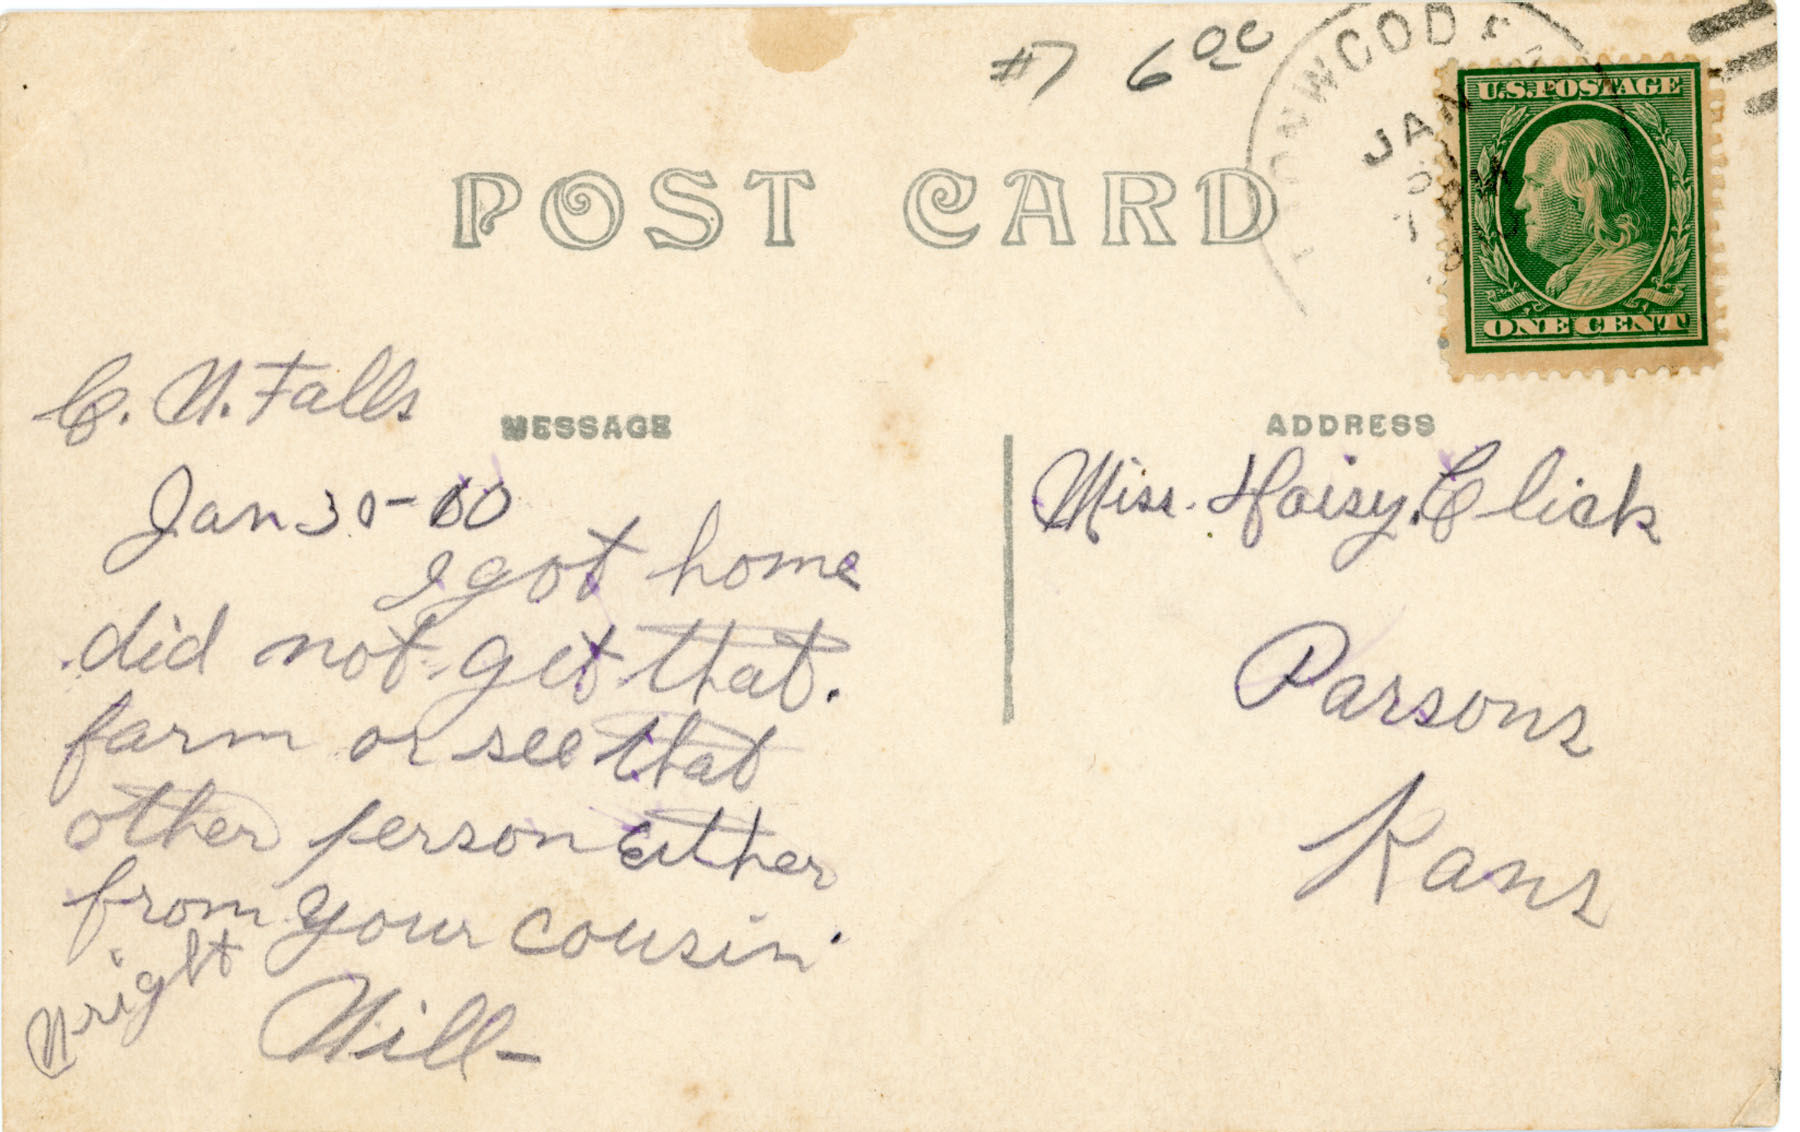 #7 6 00
TONWOOD
JAN
U.S. POSTAGE
ONE CENT
POST CARD
C. W. Falls
MESSAGE
Jan 30-10
I got home
did not get that.
farm or see that
other person either
from your cousin.
Will-
Wright
ADDRESS
Miss. Daisy. Click
Parsons
Kans